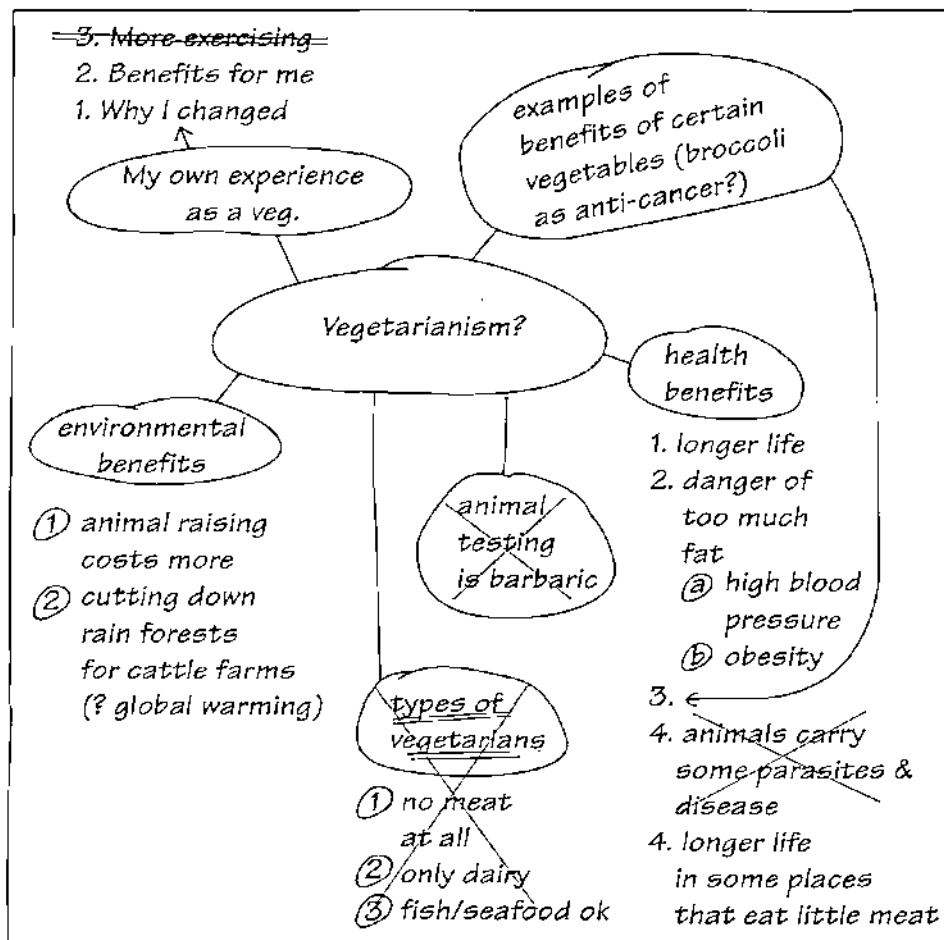 3. More exercising
2. Benefits for me
1. Why I changed
My own experience
as a veg.
examples of
benefits of certain
vegetables (broccoli
as anti-cancer?)
Vegetarianism?
health
benefits
1. longer life
2. danger of
too much
fat
ⓐ high blood
pressure
ⓑ obesity
3.
4. animals carry
some parasites &
disease
4. longer life
in some places
that eat little meat
environmental
benefits
① animal raising
costs more
② cutting down
rain forests
for cattle farms
(? global warming)
animal
testing
is barbaric
types of
vegetarians
① no meat
at all
② only dairy
③ fish/seafood ok